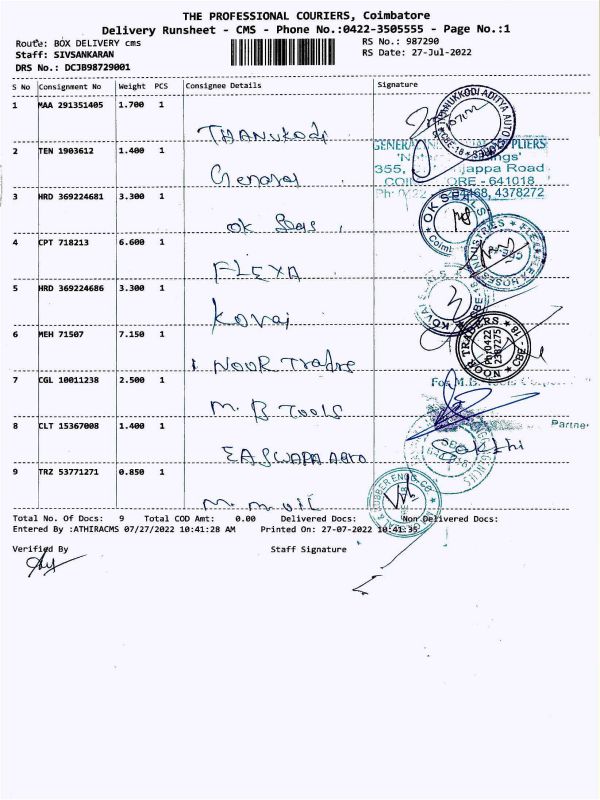 THE PROFESSIONAL COURIERS, Coimbatore
Delivery Runsheet - CMS - Phone No.:0422-3505555 - Page No.:1
Route: BOX DELIVERY cms
RS No.: 987290
Staff: SIVSANKARAN
RS Date: 27-Jul-2022
DRS No.: DCJB98729001
S No Consignment No Weight PCS Consignee Details Signature
1 MAA 291351405 1.700 1
THANUKODI
THANUKKODI ADITYA AUTO
CBE-18
2 TEN 1903612 1.400 1
General
GENERAL SUPPLIERS
355, Road
COIMBATORE - 641018
4378272
3 HRD 369224681 3.300 1
OK Seals
OK SEALS
4 CPT 718213 6.600 1
FLEXA
HOSES INDUSTRIES
CBE
5 HRD 369224686 3.300 1
Kovai
KOVAI
CBE-18
6 MEH 71507 7.150 1
NOOR Tradrs
NOOR TRADERS
CBE - 18
PH:0422
2387275
7 CGL 10011238 2.500 1
M. B Tools
For M.B. Tools
Partner
8 CLT 15367008 1.400 1
EASWARA AUTO
Sakthi
9 TRZ 53771271 0.850 1
M. M. Mil
RUBBER ENGG. CO
Total No. Of Docs: 9 Total COD Amt: 0.00 Delivered Docs: Non Delivered Docs:
Entered By :ATHIRACMS 07/27/2022 10:41:28 AM Printed On: 27-07-2022 10:41:35
Verified By Staff Signature